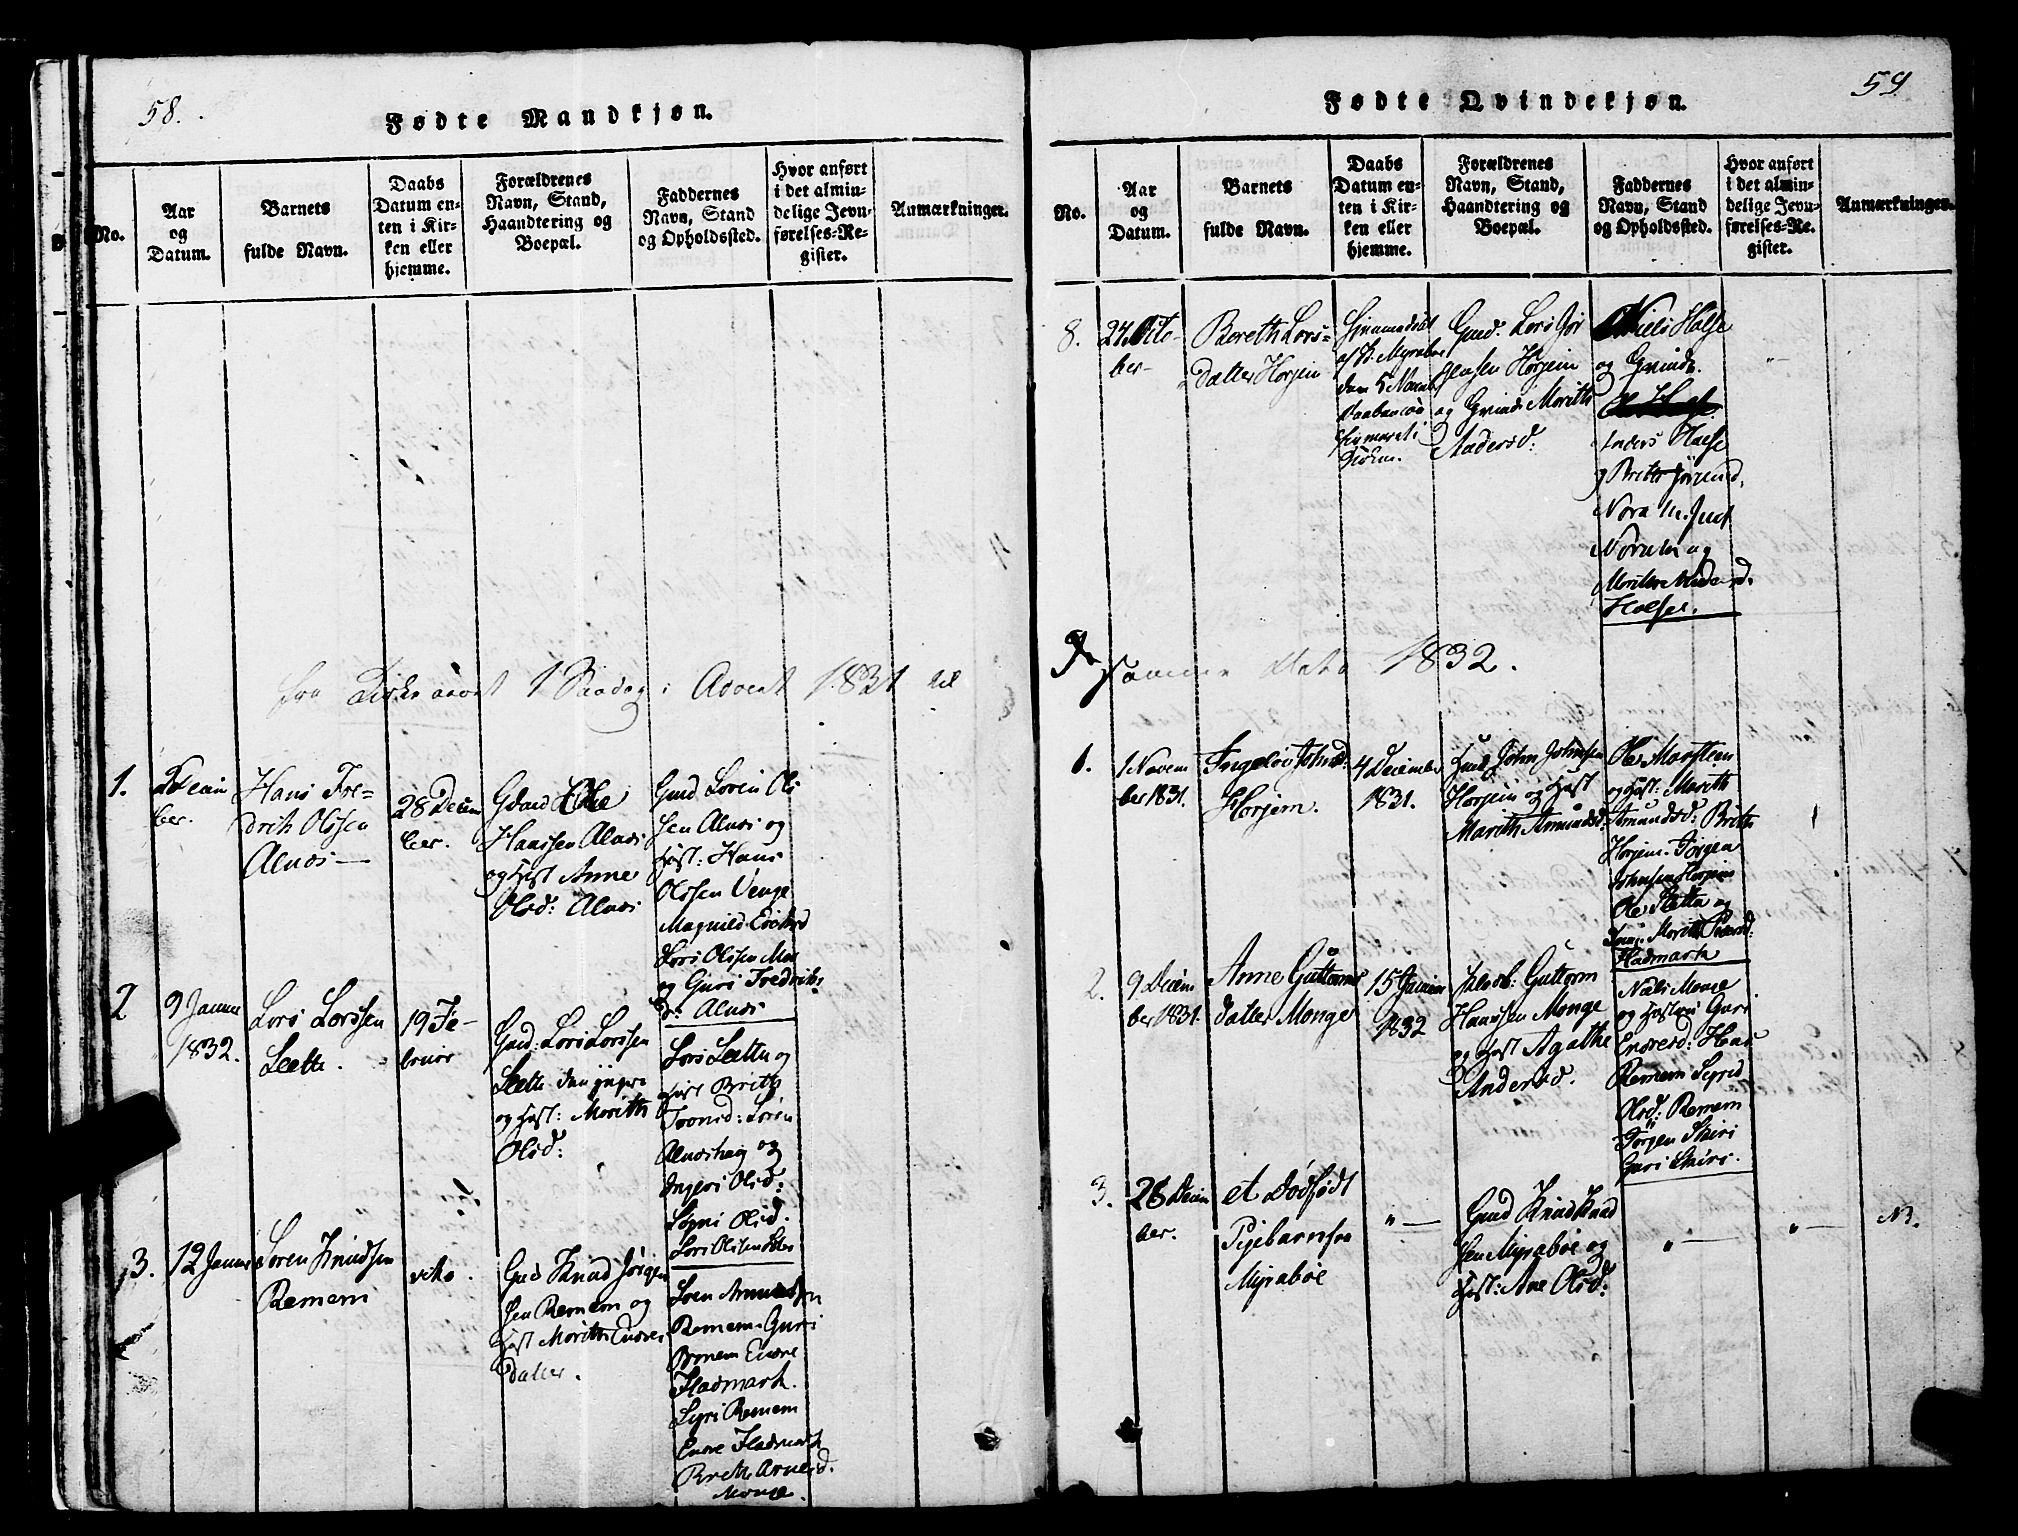 58.
Fødte Mandkjøn.
No.
Aar
og
Datum.
Barnets
fulde Navn.
Daabs
Datum en-
ten i Kir-
ken eller
hjemme.
Forældrenes
Navn, Stand,
Haandtering og
Boepæl.
Faddernes
Navn, Stand
og Opholdssted.
Hvor anført
i det almin-
delige Jevn-
førelses-Re-
gister.
Anmærkninger.
fra Kirkeaaret 1 Søndag i Advent 1831 til
1.
Decem
ber.
Hans Fre-
drik Olssen
Alnæs —
28 Decem
ber.
Gaard Ole
Hanssen Alnæs
og Hust Anne
Olsd: Alnæs
Gmd Søren Ols
sen Alnæs og
Hust: Hans
Olssen Venge
Magnild
Lars Olssen Moe
og Guri Fredriks
d: Alnæs
2
9 Janua
1832.
Lars Larssen
Sætte.
19 Fe-
bruar
Gmd: Lars Larssen
Sætte den yngre
og Hust: Marith
Olsd:
Lars Sætte og
Hust Brith
Tronsd: Søren
Alnæshag og
Ingeri Olsd:
Signi Olsd:
Lars Olssen
3.
12 Janua
Søren Knudsen
Remem
dito.
Gmd Knud Jørgen
sen Remem og
Hust Marith Endres
datter.
Søren
Remem. Guri
Endre
Fladmark.
Sigri Remem
Endre Fladmark
Brith Arnesd.
Monge.
59
Fødte Qvindekjøn.
No.
Aar
og
Datum.
Barnets
fulde Navn.
Daabs
Datum en-
ten i Kir-
ken eller
hjemme.
Forældrenes
Navn, Stand,
Haandtering og
Boepæl.
Faddernes
Navn, Stand
og Opholdssted.
Hvor anført
i det almin-
delige Jevn-
førelses-Re-
gister.
Anmærkninger.
8.
24 Octo-
ber
Bereth Lars-
datter Horjem
Hjemmedøbt
af K. Myrabøe
den 5 Novemb
Daaben
i
Kirken.
Gmd. Lars Jør
gensen Horjem
og Qvinde Marith
Andersd:
Niels Halse
og Qvinde.
Anders Halse
og Brithe Jørgensd,
og
Halse.
samme dato 1832.
1.
1 Novem
ber 1831.
Ingeløv Johnsd:
Horjem.
4 December
1831.
Gmd John Johnsen
Horjem og Hust
Marith Amundsd:
Ole Marsteen
og Hust: Marith
Amundsd: Brith
Horjem. Jørgen
Johnsen Horjem
Ole Sletta og
Marith
Fladmark
2.
9 Decem
ber 1831.
Anne Guttorms
datter Monge
15 Januar
1832
Guttorm
Hanssen Monge
og Hust Agathe
Andersd.
Niels Monge
og Hustru Guri
Endresd: Hans
Remem Sigrid
Olsd: Remem
Jørgen Skiri
Guri Skiri.
3.
28 Decem
ber.
et dødfødt
Pigebarn fra
Myrabøe
" —
Gmd Knud Knud
sen Myrabøe og
Hust: Ane Olsd:
" —
" —